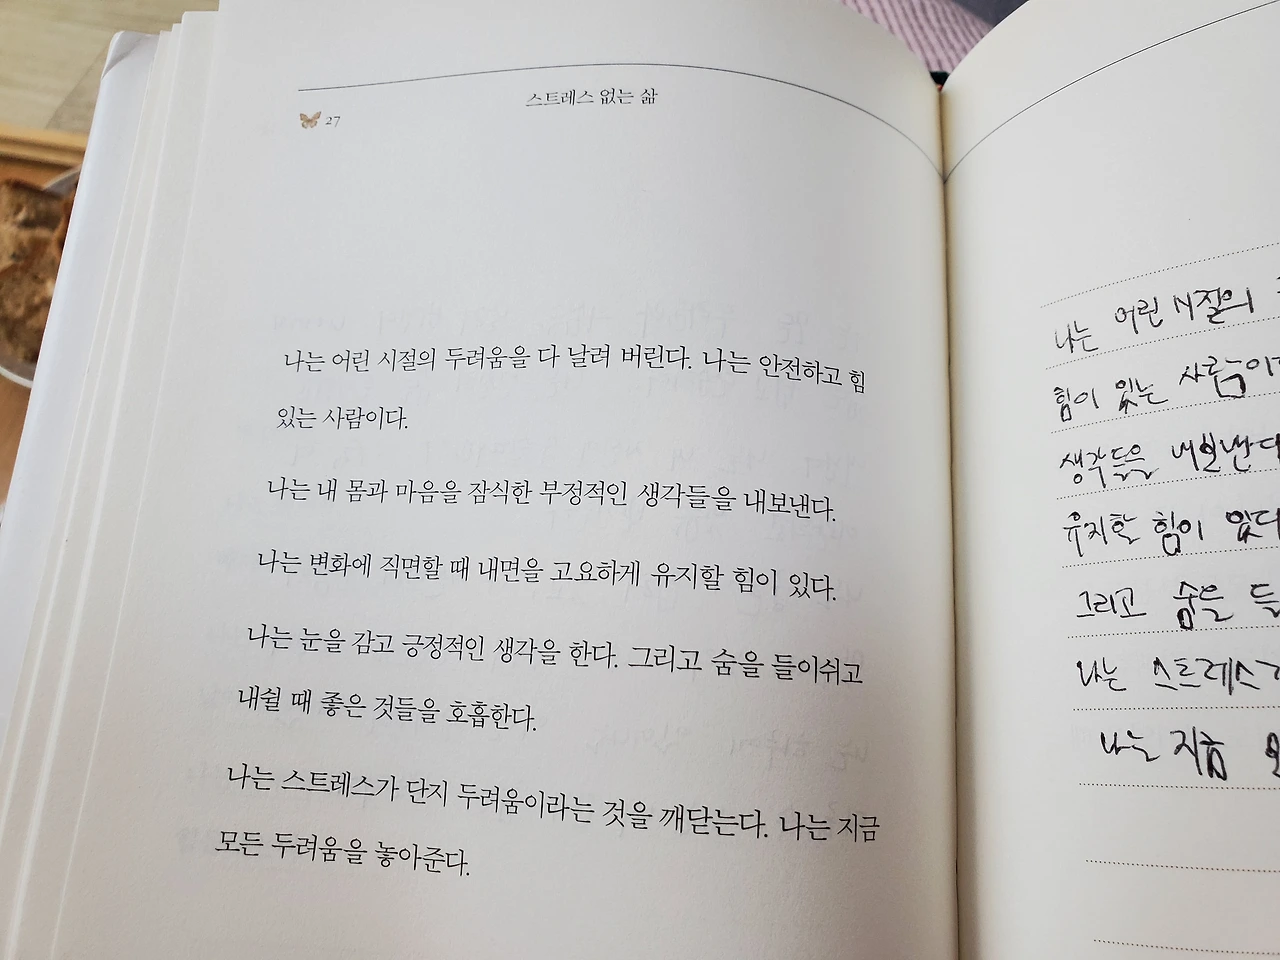 스트레스 없는 삶
27
나는 어린 시절의 두려움을 다 날려 버린다. 나는 안전하고 힘
있는 사람이다.
나는 내 몸과 마음을 잠식한 부정적인 생각들을 내보낸다.
나는 변화에 직면할 때 내면을 고요하게 유지할 힘이 있다.
나는 눈을 감고 긍정적인 생각을 한다. 그리고 숨을 들이쉬고
내쉴 때 좋은 것들을 호흡한다.
나는 스트레스가 단지 두려움이라는 것을 깨닫는다. 나는 지금
모든 두려움을 놓아준다.
나는 어린 시절의
힘이 있는 사람이
생각들을 내보낸다
유지할 힘이 있다
그리고 숨을 들
나는 스트레스가
나는 지금